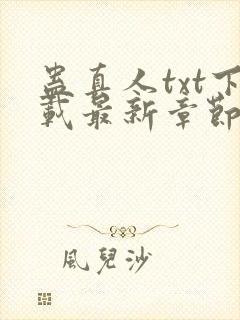 蛊真人txt下
载最新章節
風兒沙